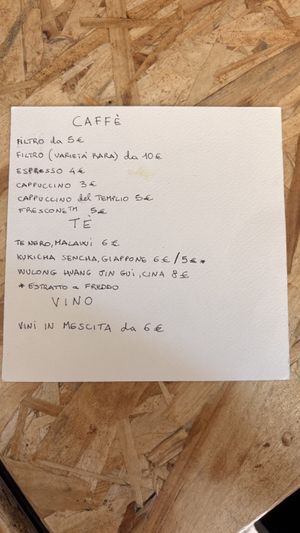 CAFFÈ
FILTRO da 5€
FILTRO (VARIETÀ RARA) da 10€
ESPRESSO 4€
CAPPUCCINO 3€
CAPPUCCINO del TEMPLIO 5€
FRESCONE™ 5€
TÈ
TE NERO, MALAWI 6€
KUKICHA SENCHA, GIAPPONE 6€/5€*
WULONG HUANG JIN GUI, CINA 8€
* ESTRATTO a FREDDO
VINO
VINI IN MESCITA da 6€